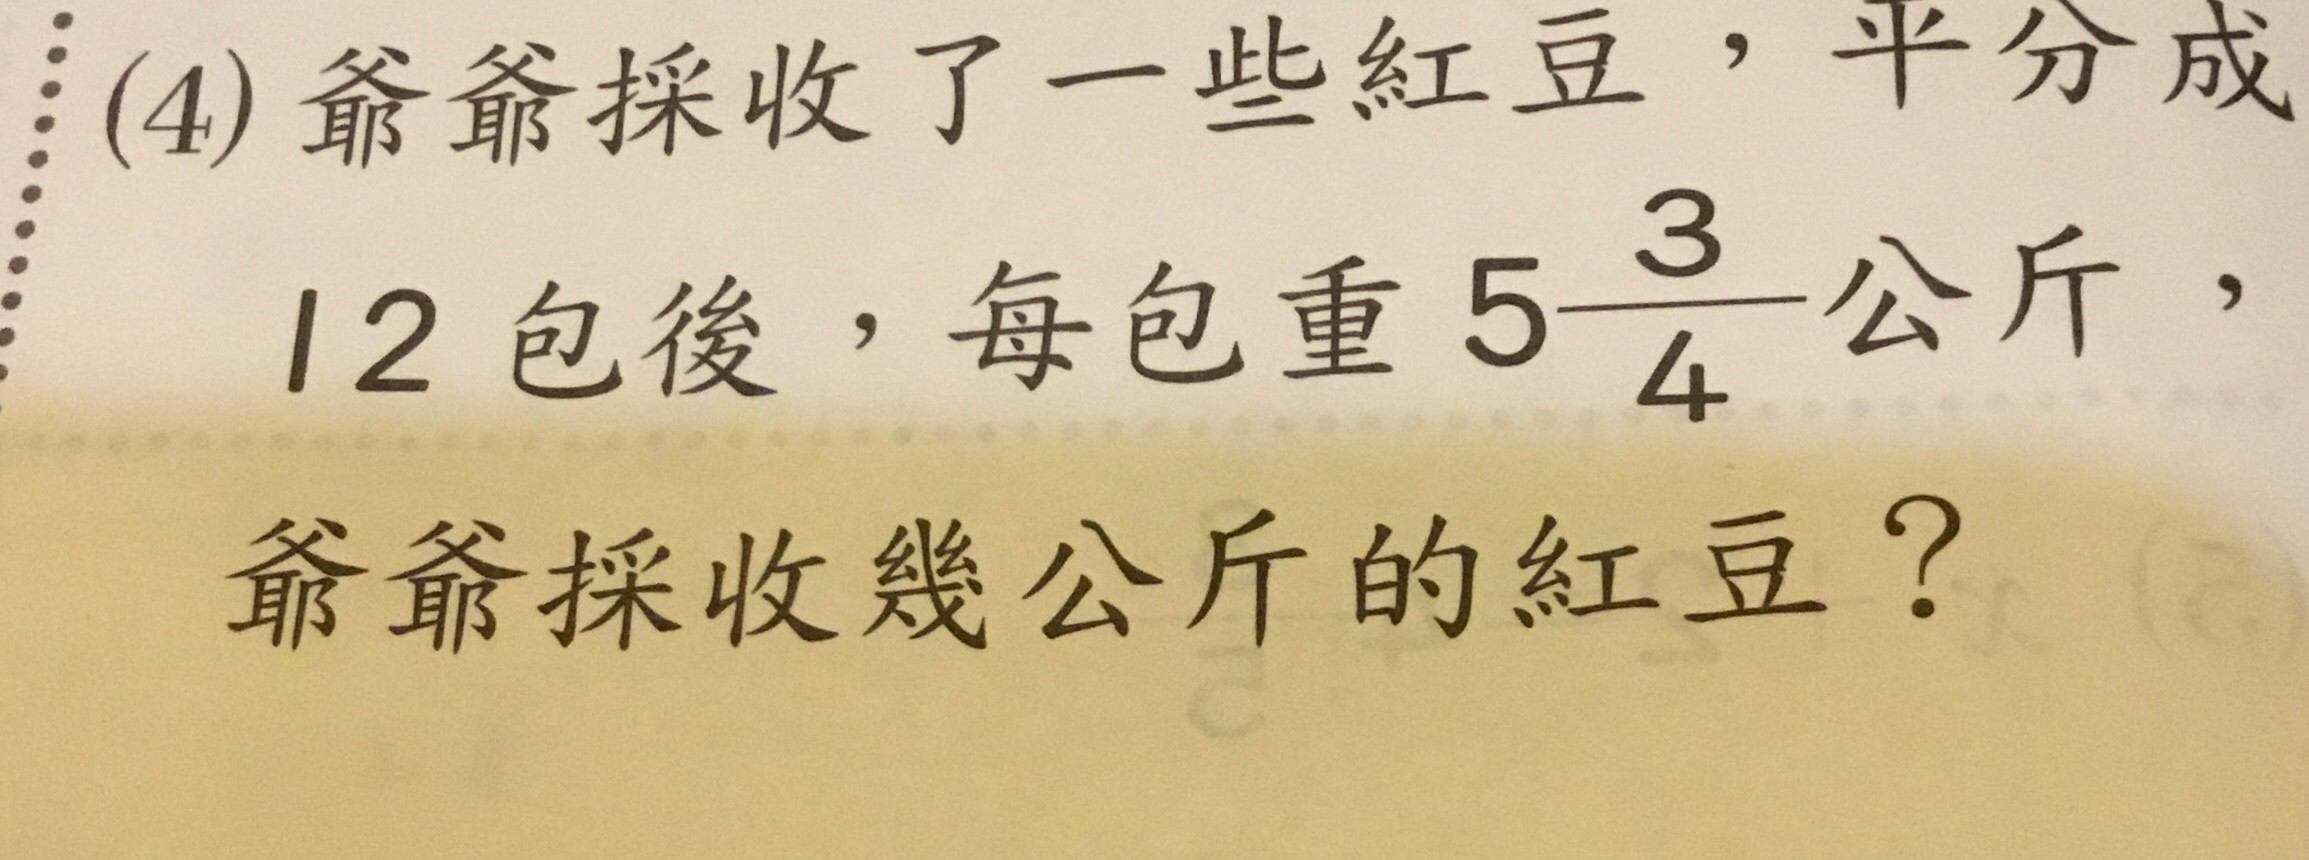 (4) 爺爺採收了一些紅豆，平分成
12 包後，每包重 5 3/4 公斤，
爺爺採收幾公斤的紅豆？